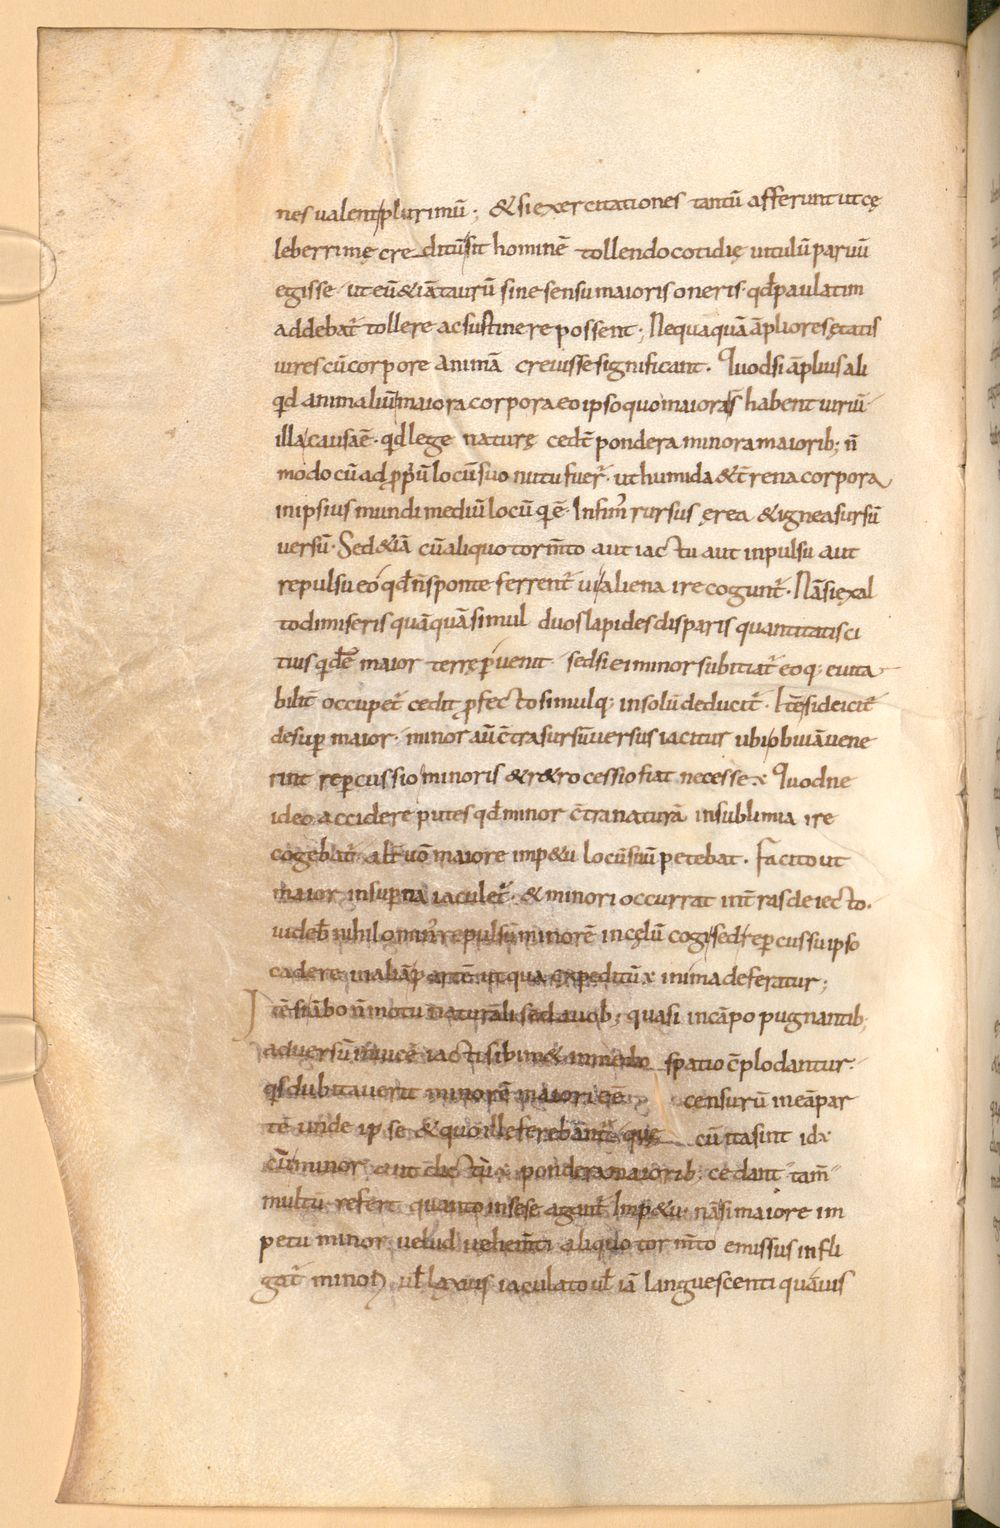 nes valent plurimū; & si exercitationes tantū afferunt ut cę
leberrimę creditū sit hominē tollendo cotidię uitulū paruū
egisse ut eū & iā taurū sine sensu maioris oneris · qd̄ paulatim
addebat᷑ tollere ac sustinere possent; Nequaquā āpliores ętatis
uires cū corpore animā creuisse significant. Quod si āplius ali
qd animaliū maiora corpora eo ipso quo maiora s̄ habent uiriū
illa causa ē · qd lege naturę cedt̄ pondera minora maiorib; n̄
modo cū ad ꝓpriū locū suo nutu fuer̄ · ut humida & t̄rena corpora
in ipsius mundi mediū locū qi ē · Infim̄ rursus ęrea & ignea sursū
uersū · Sed & iā cū aliquo torm̄to aut iactu aut inpulsu aut
repulsu eo qd̄ n̄ sponte ferrent᷑ ui aliena ire cogunt᷑ · Nā si ęxal
to dimiseris quāquā simul duos lapides disparis quantitatis ci
tius qd̄ē maior terrę puenit sed si ei minor subitiat᷑ eoq; euita
bilit̄ occupet᷑ cedit ꝓfecto simulq; in solū deducit᷑ · Itē si deiciet᷑
desup maior · minor aū c̄tra sursū uersus iacitur ubi obuiā uene
rint repcussio minoris & r&rocessio fiat necesse ē · Quod ne
ideo accidere putes qd̄ minor c̄tra naturā in sublimia ire
cogebat᷑ alt̄ uō maiore imp&u locū suū petebat. Facito ut
maior in supna iaculet᷑ · & minori occurrat int̄ras deiecto.
uideb̄ nihilomin᷒ repulsū minorē in cęlū cogi sed repcussu ipso
cadere in aliā partē ut qua expeditū ē inima deferatur;
Itē si ābo n̄ motu naturali sed a uob; quasi in cāpo pugnantib;
aduersū inuicē iacti sibim& in medio spatio c̄plodantur ·
qs dubitauerit minorē maiori cēē censurū in eā par
tē unde ipse & quo ille ferebānt᷑ quę cū ita sint id ē
cū minor aut dictū ē pondera maiorib; cedant tam̄
multū refert quanto in sese agunt᷑ imp&u nā si maiore im
petu minor uelud uehem̄ti aliquo torm̄to emissus infli
gat᷑ minori ul̄ laxius iaculato ul̄ iā languescenti quāuis